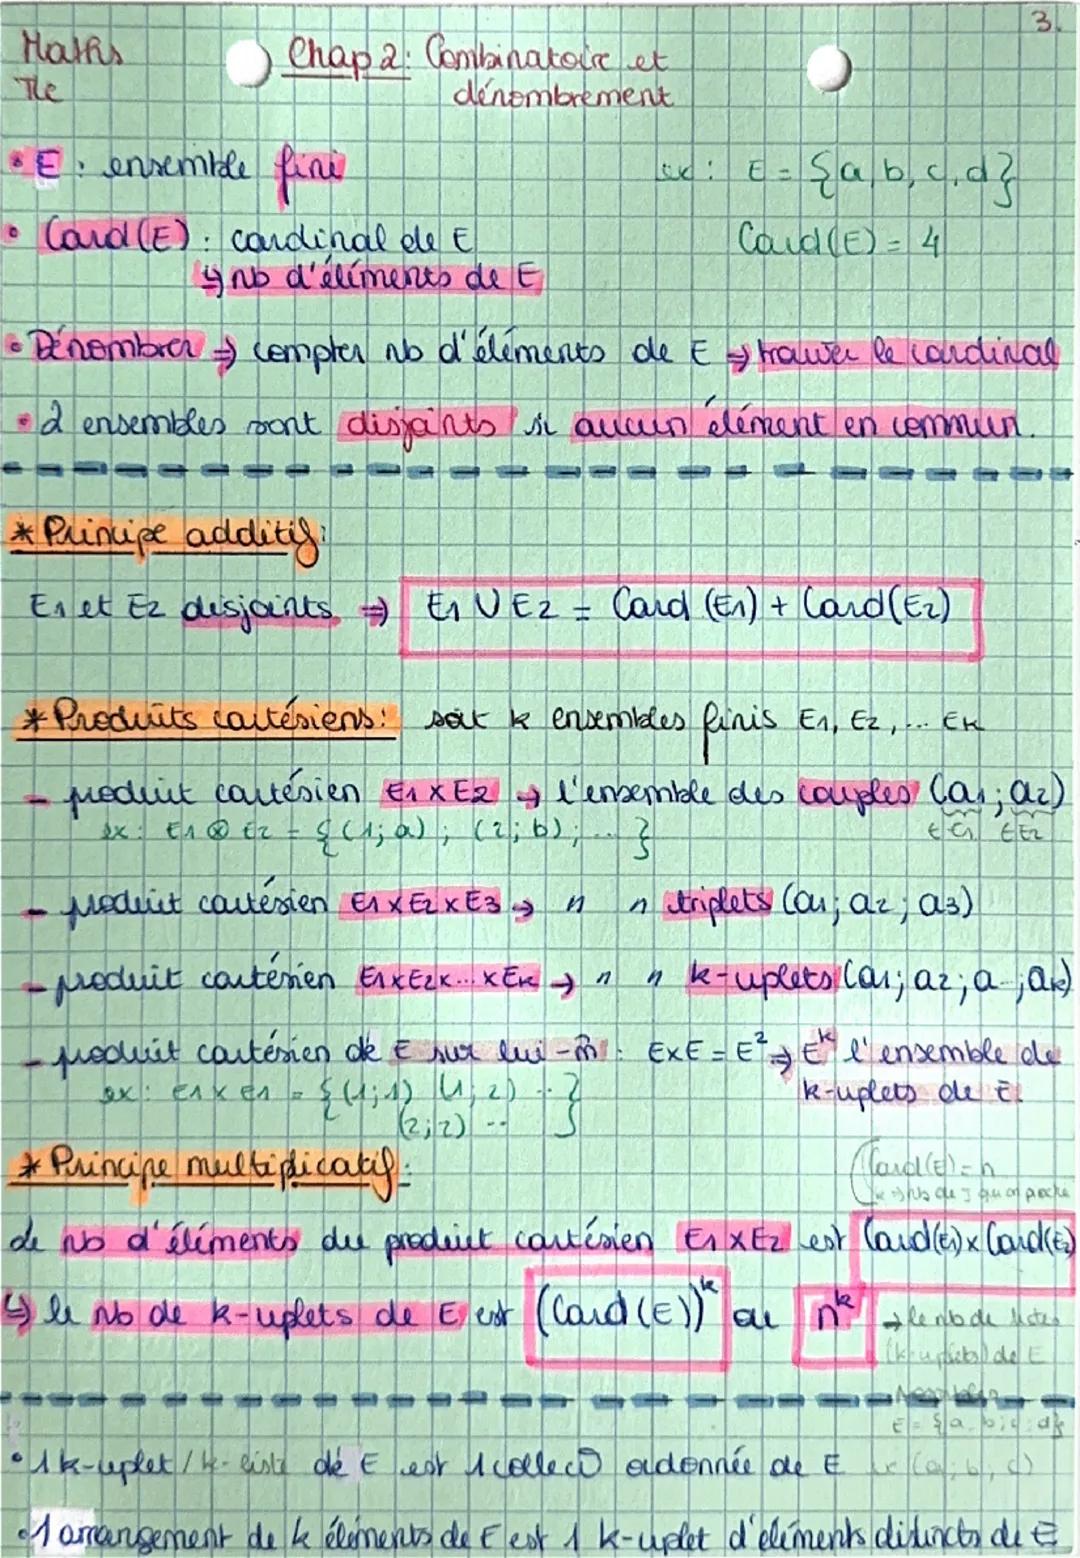 3.
Maths
Tle
Chap 2: Combinatoire et
dénombrement
• E : ensemble fini
ex : E = {a, b, c, d}
• Card(E) : cardinal de E
Card(E) = 4
↳ nb d'éléments de E
• Dénombrer ⇒ compter nb d'éléments de E ⇒ trouver le cardinal
• 2 ensembles sont disjoints si aucun élément en commun.
* Principe additif:
E1 et E2 disjoints ⇒ E1 ∪ E2 = Card (E1) + Card(E2)
* Produits cartésiens: soit k ensembles finis E1, E2, ... EK
- produit cartésien E1 x E2 → l'ensemble des couples (a1; a2)
ex : E1 ⊗ E2 = {(1; a) ; (2; b); ... }
∈ E1 ∈ E2
- produit cartésien E1 x E2 x E3 → " " triplets (a1; a2; a3)
- produit cartésien E1 x E2 x ... x EK → " " k-uplets (a1; a2; a...; ak)
- produit cartésien de E sur lui-m̂ : E x E = E² ⇒ E^k l'ensemble de
k-uplets de E.
ex : E1 x E1 = {(1;1) (1; 2) ... }
(2;2) ...
* Principe multiplicatif:
Card(E) = n
de nb d'éléments du produit cartésien E1 x E2 est Card(E1) x Card(E2)
↳ le nb de k-uplets de E est (Card(E))^k ou n^k
→ le nb de listes
(k-uplets) de E
E = {a, b, c, d}
• 1 k-uplet / k-liste de E est 1 collec° ordonnée de E ex (a; b; c)
• 1 arrangement de k éléments de E est 1 k-uplet d'éléments distincts de E